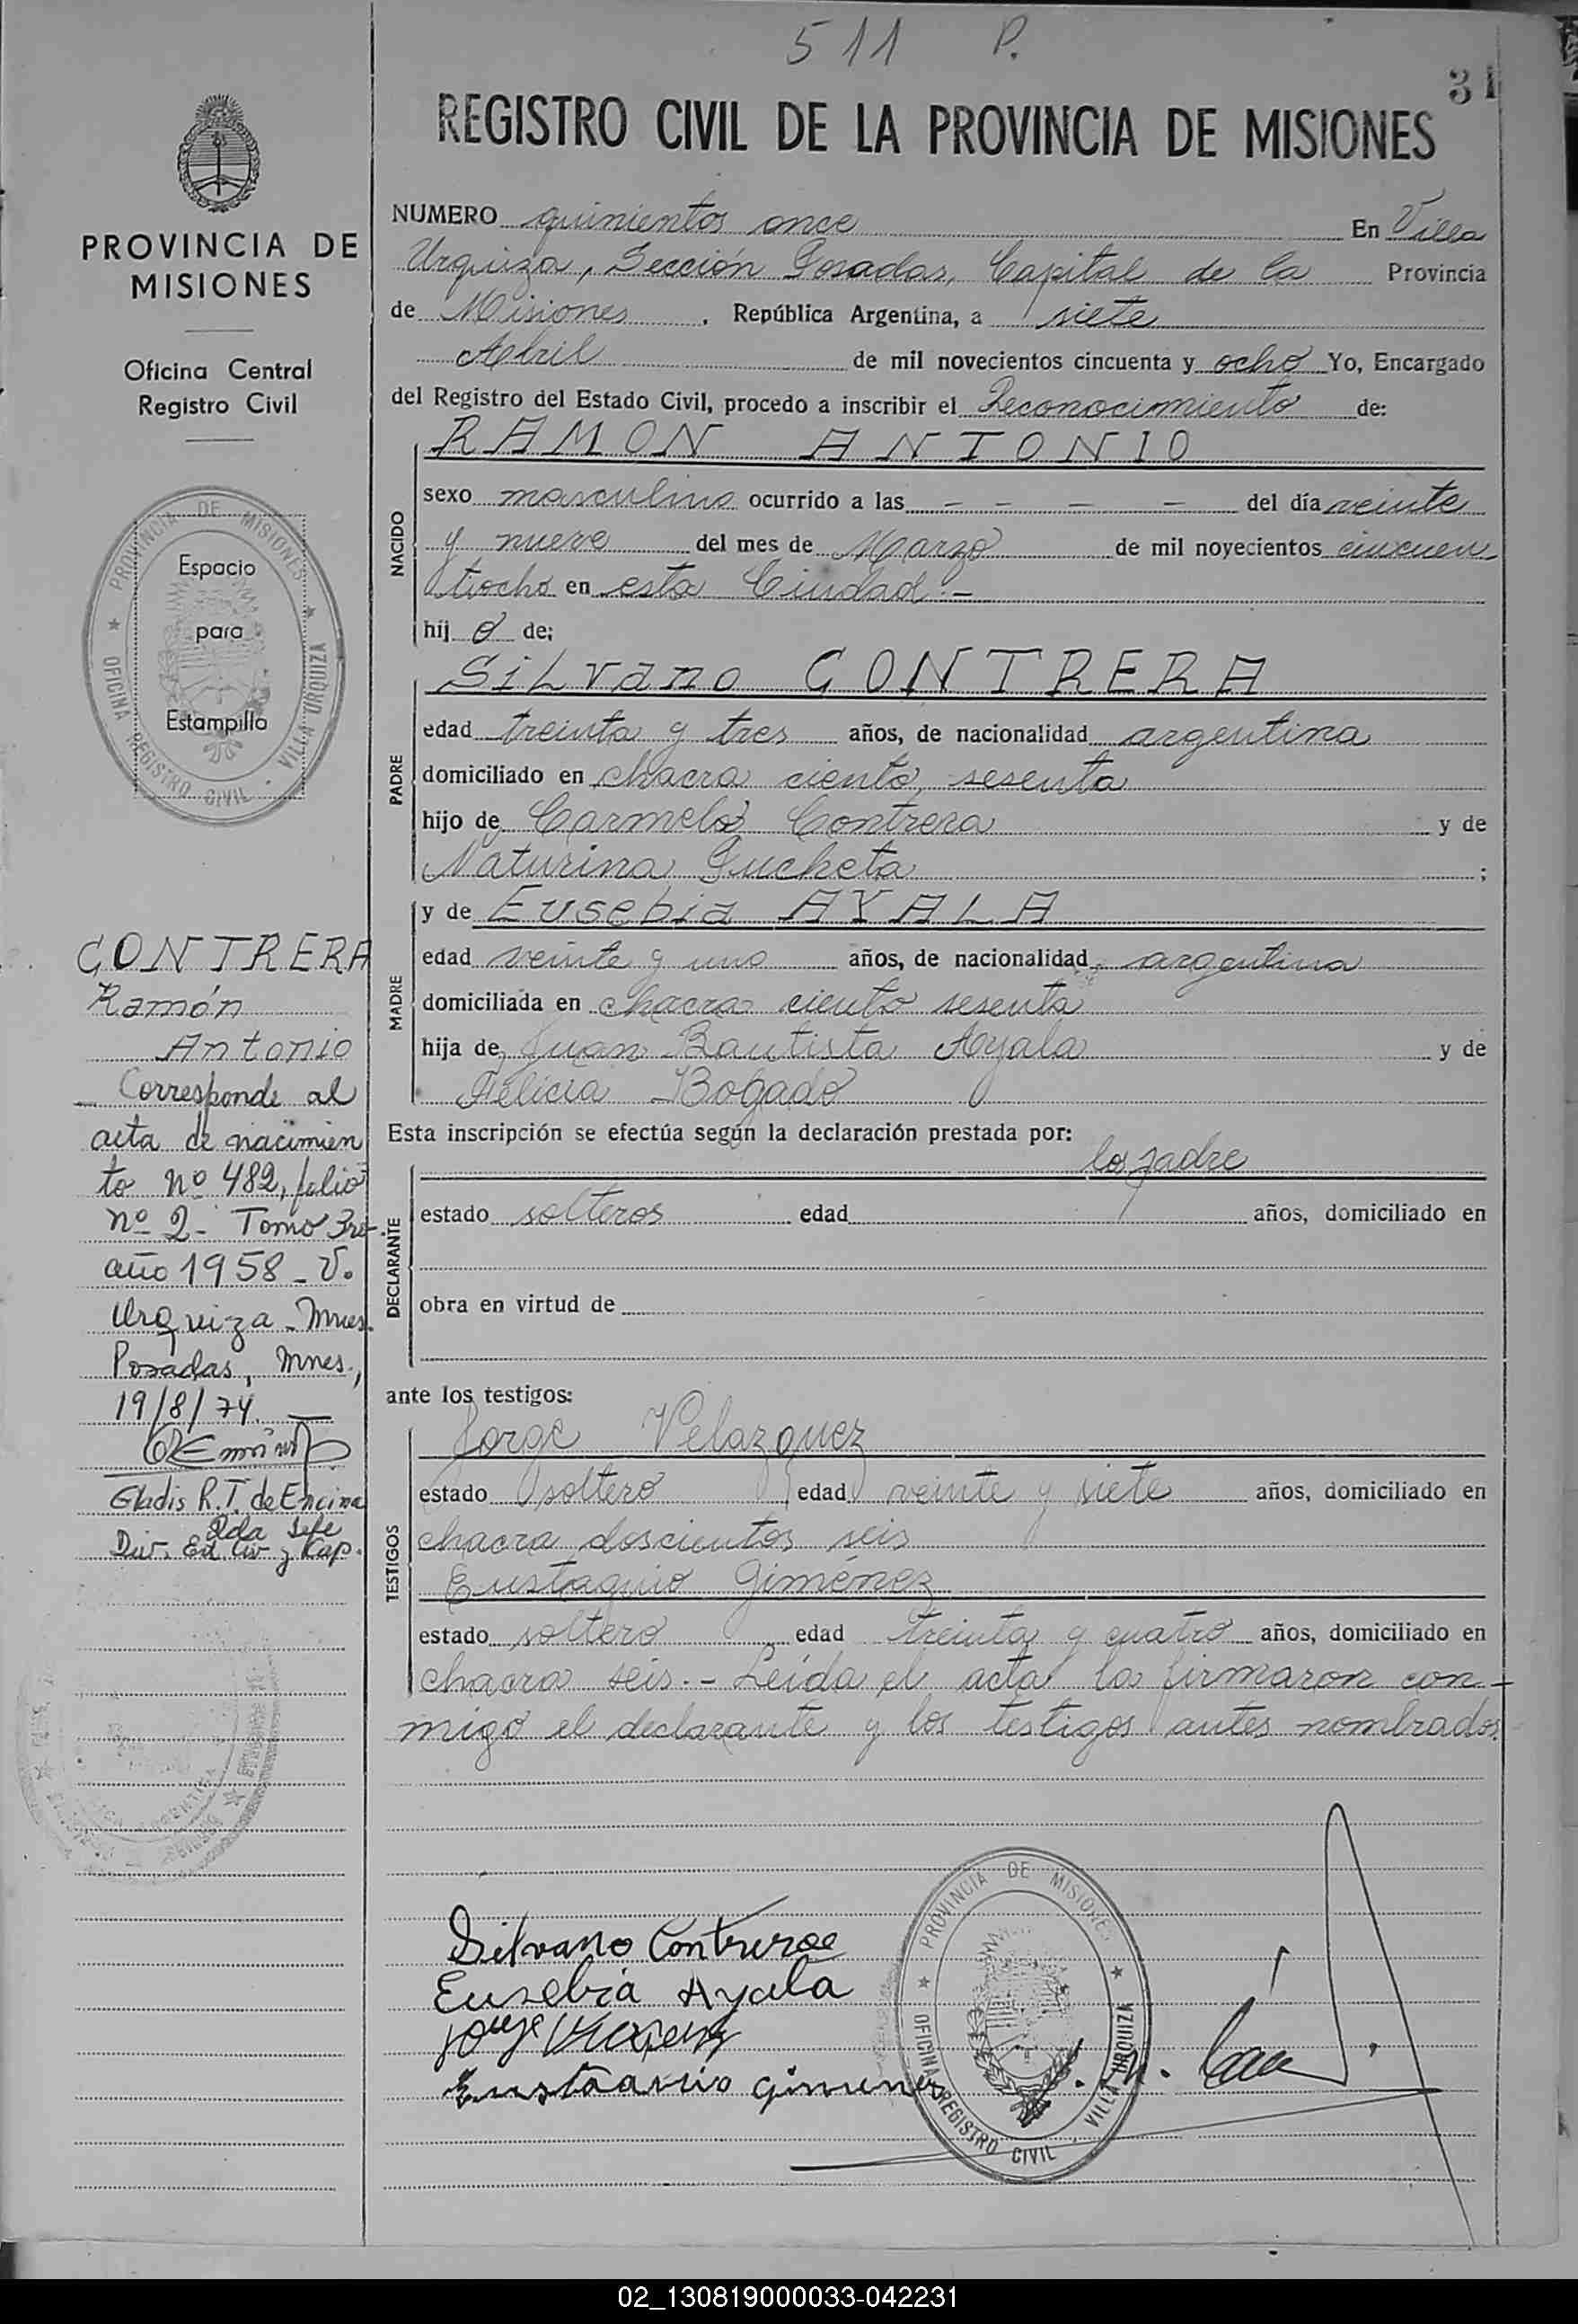 511 P.
31
REGISTRO CIVIL DE LA PROVINCIA DE MISIONES
PROVINCIA DE
MISIONES
Oficina Central
Registro Civil
Espacio
para
Estampilla
PROVINCIA DE MISIONES
OFICINA REGISTRO CIVIL - VILLA URQUIZA
CONTRERA
Ramón
Antonio
Corresponde al
acta de nacimien
to nº 482, folio
nº 2 - Tomo 3ro-
año 1958 - V.
Urquiza - Mnes.
Posadas, Mnes.,
19/8/74. —
Gladis R. T. de Encina
2da Jefe
Div. Est. Civ y Cap.
NUMERO quinientos once En Villa
Urquiza, Sección Posadas, Capital de la Provincia
de Misiones, República Argentina, a siete
Abril de mil novecientos cincuenta y ocho Yo, Encargado
del Registro del Estado Civil, procedo a inscribir el Reconocimiento de:
NACIDO
RAMON ANTONIO
sexo masculino ocurrido a las - - - - del día veinte
y nueve del mes de Marzo de mil novecientos cincuen
tiocho en esta Ciudad.-
hij o de:
PADRE
Silvano CONTRERA
edad treinta y tres años, de nacionalidad argentina
domiciliado en chacra ciento sesenta
hijo de Carmelo Contrera y de
Naturina Pucheta ;
MADRE
y de Eusebia AYALA
edad veinte y uno años, de nacionalidad argentina
domiciliada en chacra ciento sesenta
hija de Juan Bautista Ayala y de
Felicia Bogado
Esta inscripción se efectúa según la declaración prestada por:
DECLARANTE
los padre
estado solteros edad años, domiciliado en
obra en virtud de
ante los testigos:
TESTIGOS
Jorge Velazquez
estado soltero edad veinte y siete años, domiciliado en
chacra doscientos seis
Eustaquio Giménez
estado soltero edad treinta y cuatro años, domiciliado en
chacra seis.- Leída el acta la firmaron con-
migo el declarante y los testigos antes nombrados.
Silvano Contreras
Eusebia Ayala
Jorge Velazquez
Eustaquio Gimenez
PROVINCIA DE MISIONES
OFICINA REGISTRO CIVIL - VILLA URQUIZA
02_130819000033-042231